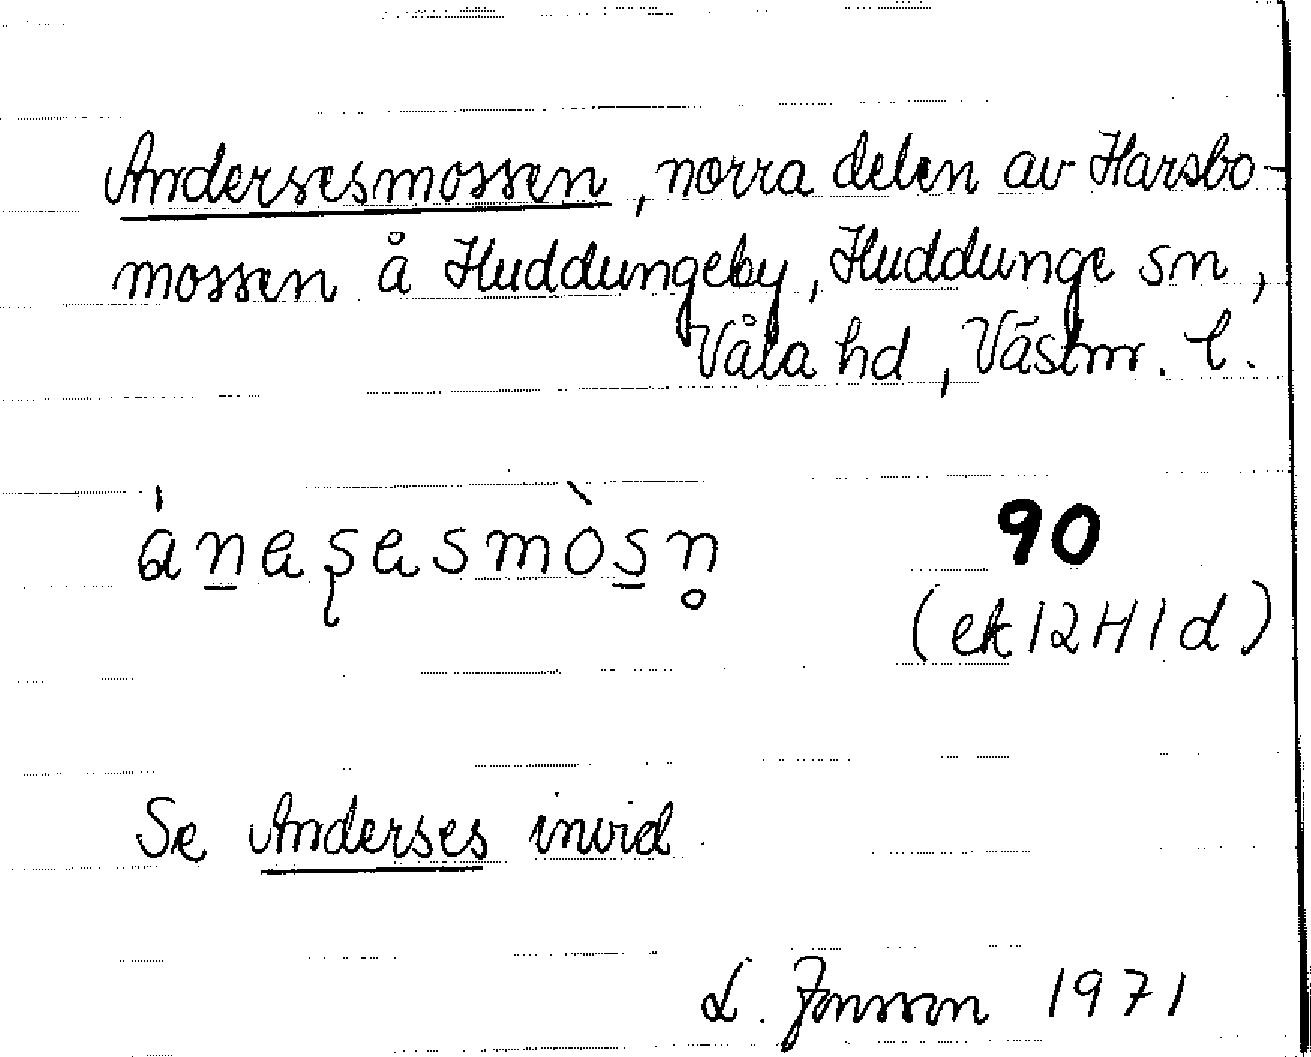 Andersesmossen, norra delen av Harsbo-
mossen å Huddungeby, Huddunge sn,
Våla hd, Västm. l.
ánesesmòsn
90
(ek 12H1d)
Se Anderses invid
L. Jonsson 1971